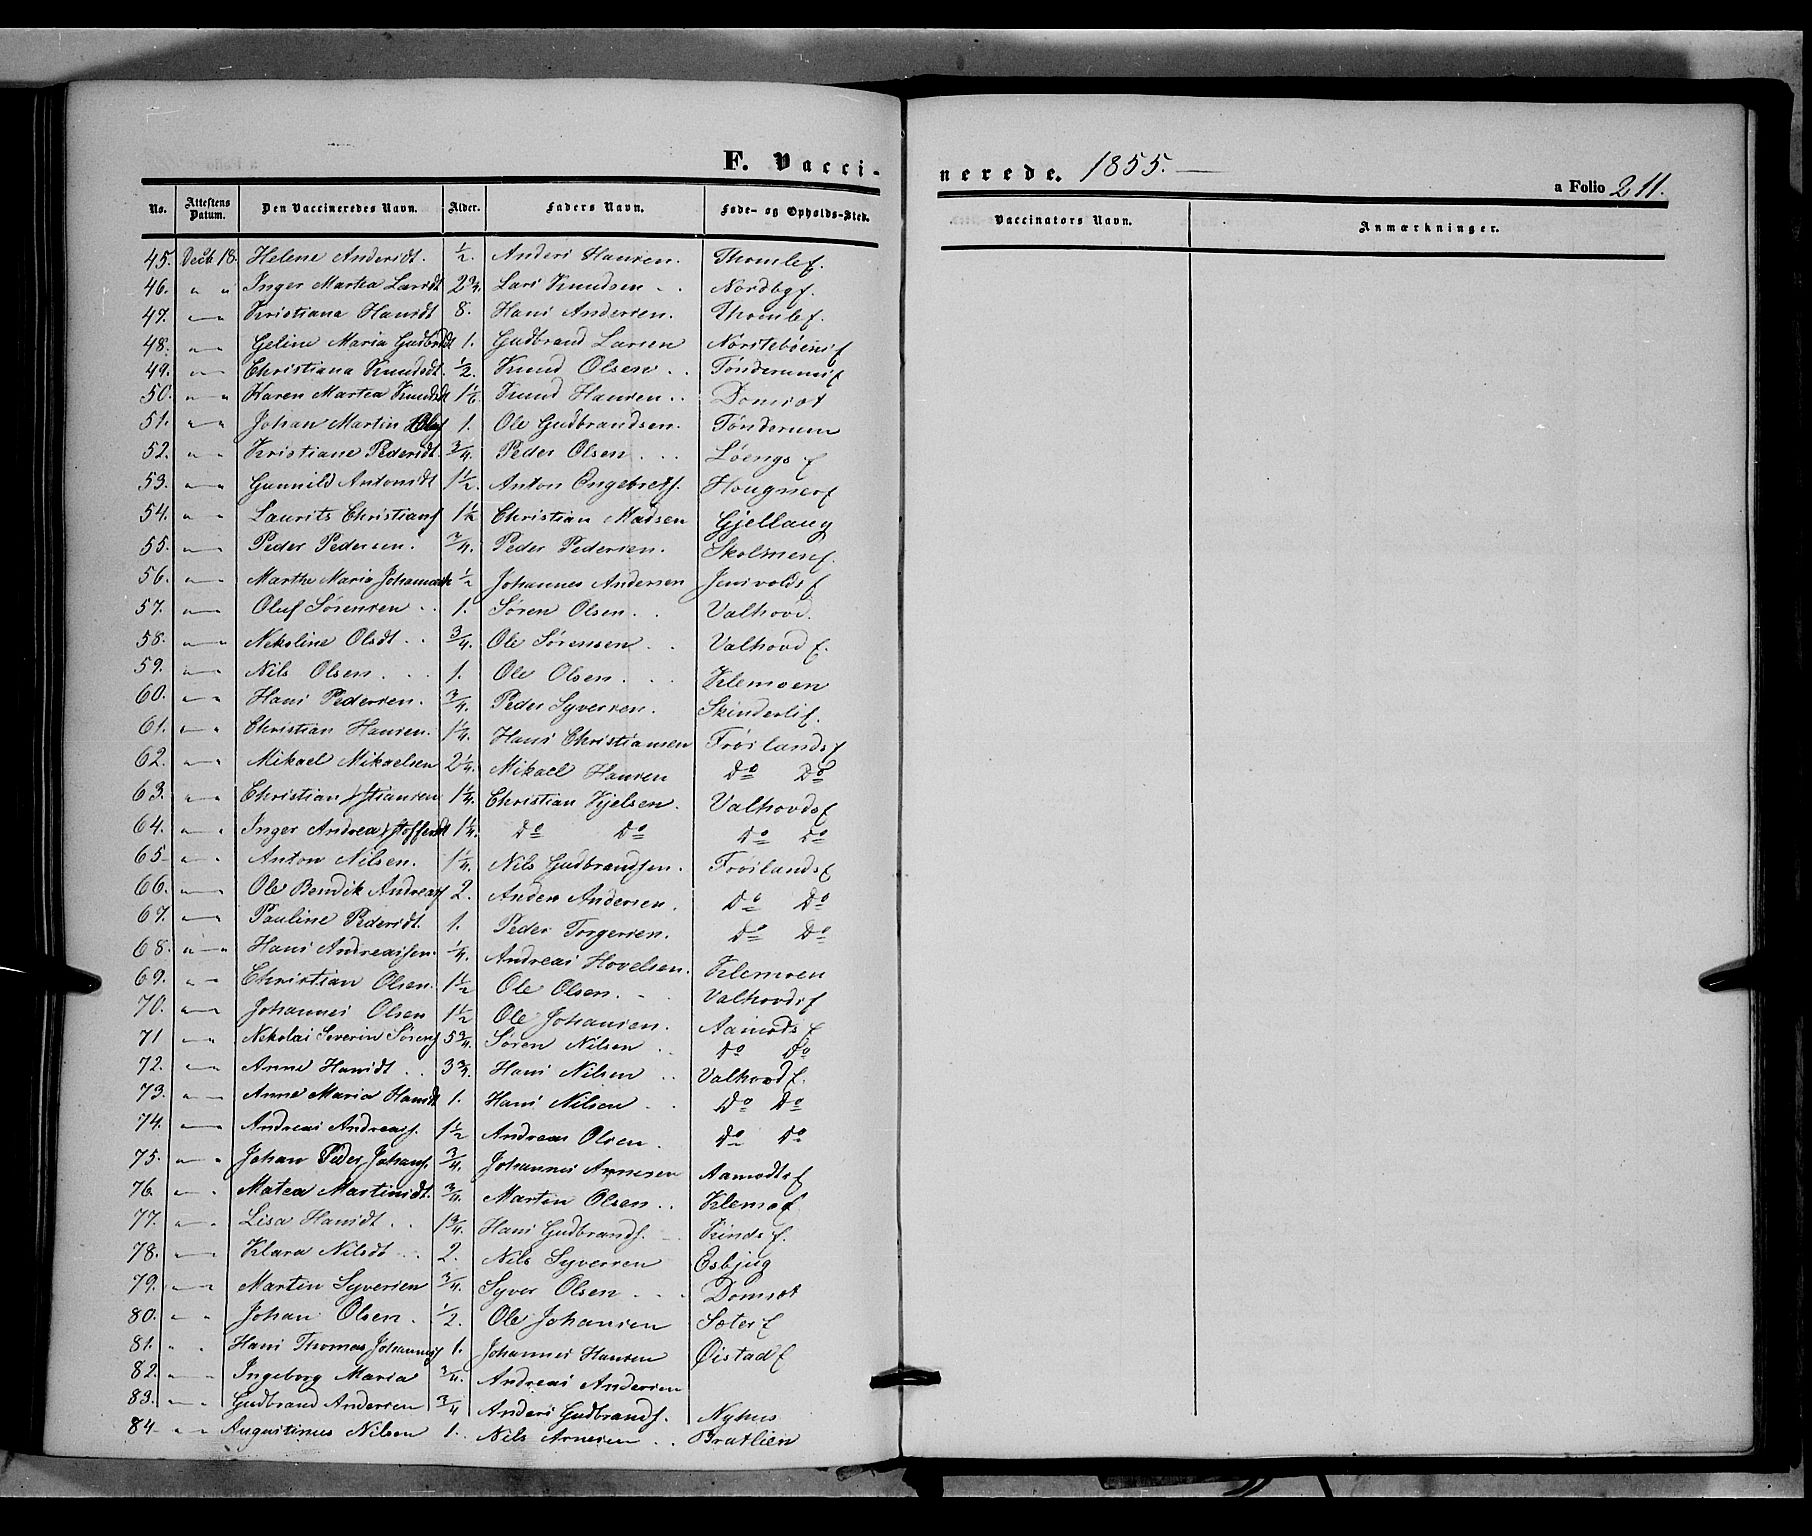 F. Vacci-
No. Attestens Datum. Den Vaccineredes Navn. Alder. Faders Navn. Føde- og Opholds-Sted.
45. Decb 18. Helene Andersdt. ½ Anders Hansen. Thomlef.
46. " " Inger Martha Larsdt 2¾ Lars Knudsen Nordbgf.
47. " " Kristiana Hansdt 8. Hans Andersen. Thomlef.
48. " " Geline Maria Gudbrdt 1. Gudbrand Larsen
49. " " Christiana Knudsdt. ½. Knud Olsen
50. " " Karen Martea Knudsdt Knud Hansen Domsøt
51. " " Johan Martin 1. Ole Gudbrandsen. Tønderum
52. " " Kristiane Pedersdt. ¾. Peder Olsen Løengs f
53. " " Gunnild Antonsdt 1½. Anton Engebretf.
54. " " Laurits Christianf Christian Madsen Gjellaug
55. " " Peder Pedersen. ¾. Peder Pedersen. Skolmenf.
56. " " Marthe Maria ½ Johannes Andersen
57. " " Oluf Sørensen 1. Søren Olsen Valhovd.
58. " " Nekoline Olsdt ¾. Ole Sørensen Valhovd f.
59. " " Nils Olsen 1. Ole Olsen Klemoen
60. " " Hans Pedersen. ¾. Peder Syversen. Skinderlif.
61. " " Christian Hansen. 1¼. Hans Christiansen Frøilandsf
62. " " Mikael Mikaelsen 2¼. Mikael Hansen Do Do
63. " " Christian 1¼. Christian Kjelsen. Valhovdsf
64. " " Inger Andrea 1¼. Do Do Do Do
65. " " Anton Nilsen. 1¼. Nils Gudbrandsen. Frøilandsf
66. " " Ole Bendik Andreasf 2. Anders Andersen. Do Do
67. " " Pauline Pedersdt. 1. Peder Torgersen. Do Do
68. " " Hans Andreassen. ¼. Andreas Hovelsen. Klemoen
69. " " Christian Olsen. 1½ Ole Olsen. Valhovdsf
70. " " Johannes Olsen 1½ Ole Johansen. Aamodsf
71 " " Nekolai Severin Sørensf 5¾. Søren Nilsen Do Do
72. " " Anne Hansdt 3¾. Hans Nilsen Valhovdf.
73. " " Anne Maria Hansdt 1. Hans Nilsen Do Do
74. " " Andreas Andreasf. 1½ Andreas Olsen. Do Do
75. " " Johan Peder Johansf. ¾. Johannes Arnesen Aamodtsf
76. " " Matea Martinsdt. ¾. Martin Olsen Klemof
77. " " Lisa Hansdt 1¾. Hans Gudbrandf.
78. " " Klara Nilsdt 2. Nils Syversen Osbjug
79. " " Martin Syversen ¾. Syver Olsen Domsøt
80. " " Johan Olsen. ½. Ole Johansen Sæterf
81. " " Hans Thomas Johannesf 1. Johannes Hansen Øistadf
82. " " Ingeborg Maria ¾. Andreas Andersen
83. " " Gudbrand Andersen ¾ Anders Gudbrandf. Nyhus
84. " " Augustinus Nilsen 1. Nils Arnesen Bratlien
nerede. 1855. —
a Folio 211.
Vaccinators Navn. Anmærkninger.